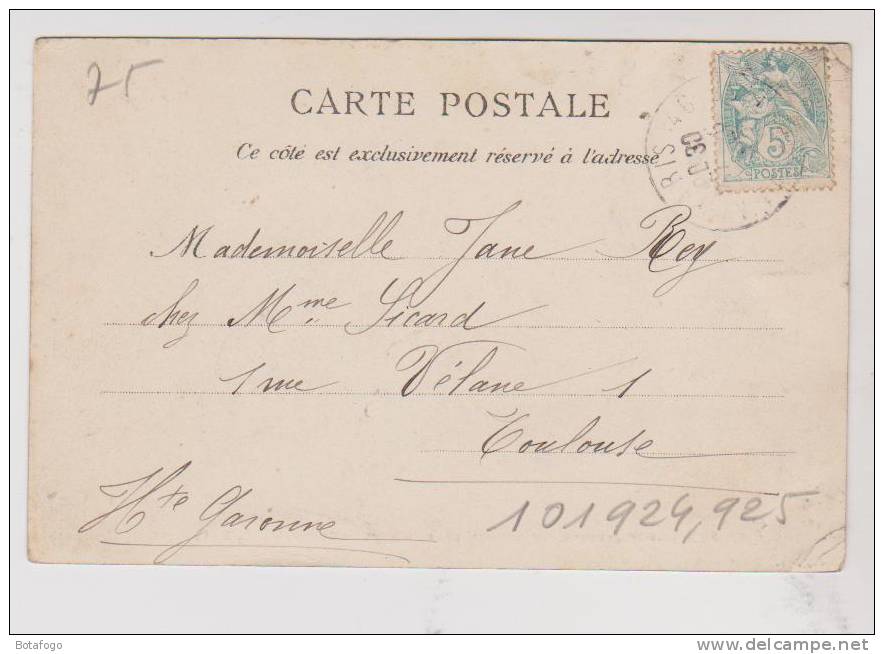 75
CARTE POSTALE
Ce côté est exclusivement réservé à l'adresse
RIS
5
POSTES
Mademoiselle Jane Rey
chez Mme Sicard
1 rue Vélane 1
Toulouse
Hte Garonne
101924,925
Botafogo
www.delcampe.net